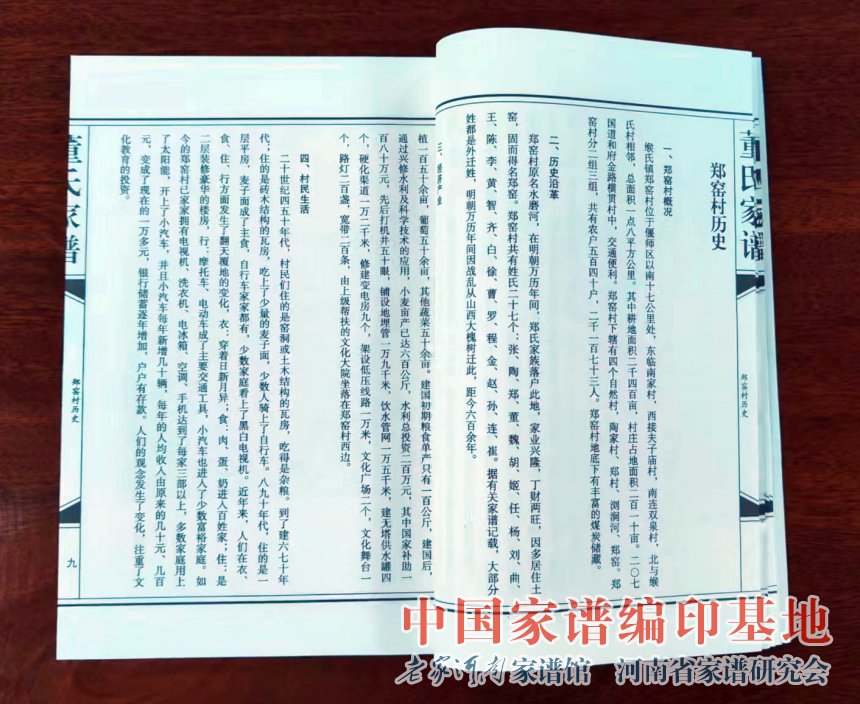 董氏家谱
郑窑村历史
郑窑村历史
一、郑窑村概况
缑氏镇郑窑村位于偃师区以南十七公里处，东临南家村，西接夫子庙村，南连双泉村，北与缑
氏村相邻，总面积一点八平方公里。其中耕地面积二千四百亩，村庄占地面积二百一十亩。二〇七
国道和府金路横贯村中，交通便利。郑窑村下辖有四个自然村，陶家村、郑村、浏涧河、郑窑。郑
窑村分二组三组，共有农户五百四十户，二千一百七十三人。郑窑村地底下有丰富的煤炭储藏。
二、历史沿革
郑窑村原名水磨河，在明朝万历年间，郑氏家族落户此地，家业兴隆，丁财两旺，因多居住土
窑，因而得名郑窑。郑窑村共有姓氏二十七个：张、陶、郑、董、魏、胡、姬、任、杨、刘、曲、
王、陈、李、黄、智、齐、白、徐、曹、罗、程、金、赵、孙、连、崔。据有关家谱记载，大部分
姓都是外迁姓，明朝万历年间因战乱从山西大槐树迁此，距今六百余年。
三、经济产业
植一百五十余亩，葡萄五十余亩，其他蔬菜五十余亩。建国初期粮食单产只有一百公斤，建国后，
通过兴修水利及科学技术的应用，小麦亩产已达六百公斤，水利总投资二百万元，其中国家补助一
百八十万元，先后打机井五十眼，铺设地埋管一万九千米，饮水管网一万五千米，建无塔供水罐四
个，硬化渠道一万二千米，修建变电房九个，架设低压线路一万米，文化广场二个，文化舞台一
个，路灯二百盏，宽带二百条，由上级帮扶的文化大院坐落在郑窑村西边。
四、村民生活
二十世纪四五十年代，村民们住的是窑洞或土木结构的瓦房，吃得是杂粮。到了建六七十年
代；住的是砖木结构的瓦房，吃上了少量的麦子面，少数人骑上了自行车。八九十年代，住的是一
层平房，麦子面成了主食，自行车家家都有，少数家庭看上了黑白电视机。近年来，人们在衣、
食、住、行方面发生了翻天覆地的变化，衣：穿着日新月异；食：肉、蛋、奶进入百姓家；住：是
二层装修豪华的楼房，行：摩托车、电动车成了主要交通工具，小汽车也进入了少数富裕家庭。如
今的郑窑村已家家拥有电视机、洗衣机、电冰箱、空调、手机达到了每家三部以上，多数家庭用上
了太阳能，开上了小汽车，并且小汽车每年新增几十辆，每年的人均收入由原来的几十元、几百
元，变成了现在的一万多元，银行储蓄逐年增加，户户有存款。人们的观念发生了变化，注重了文
化教育的投资。
董氏家谱
郑窑村历史
九
中国家谱编印基地
老家河南家谱馆 河南省家谱研究会